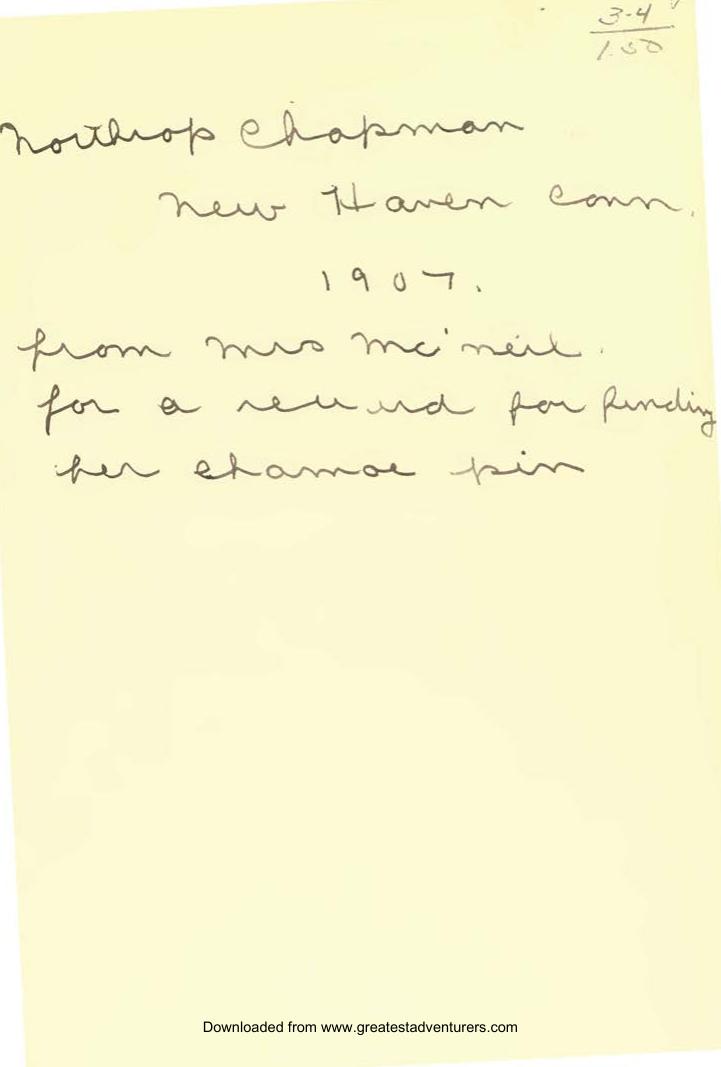 3-4
1.50
Northrop Chapman
New Haven Conn.
1907.
from Mrs Mc'neil.
for a reward for finding
her chamoe pin
Downloaded from www.greatestadventurers.com